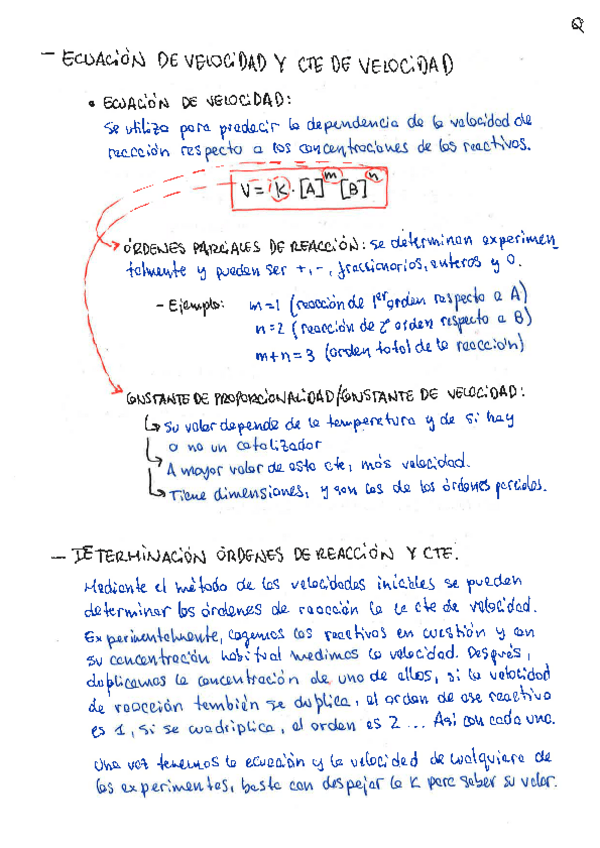 2
- ECUACIÓN DE VELOCIDAD Y CTE DE VELOCIDAD
• ECUACIÓN DE VELOCIDAD:
Se utiliza para predecir la dependencia de la velocidad de
reacción respecto a las concentraciones de los reactivos.
V = K · [A]^m [B]^n
ÓRDENES PARCIALES DE REACCIÓN: se determinan experimen_
talmente y pueden ser +, -, fraccionarios, enteros y 0.
- Ejemplo: m=1 (reacción de 1er orden respecto a A)
n=2 (reacción de 2º orden respecto a B)
m+n=3 (orden total de la reacción)
CONSTANTE DE PROPORCIONALIDAD/CONSTANTE DE VELOCIDAD:
↳ Su valor depende de la temperatura y de si hay
o no un catalizador
↳ A mayor valor de esta cte, más velocidad.
↳ Tiene dimensiones, y son las de los órdenes parciales.
- DETERMINACIÓN ÓRDENES DE REACCIÓN Y CTE.
Mediante el método de las velocidades iniciales se pueden
determinar los órdenes de reacción la cte de velocidad.
Experimentalmente, cogemos los reactivos en cuestión y con
su concentración habitual medimos la velocidad. Después,
duplicamos la concentración de uno de ellos, si la velocidad
de reacción también se duplica, el orden de ese reactivo
es 1, si se cuadriplica, el orden es 2 ... Así con cada uno.
Una vez tenemos la ecuación y la velocidad de cualquiera de
los experimentos, basta con despejar la K para saber su valor.